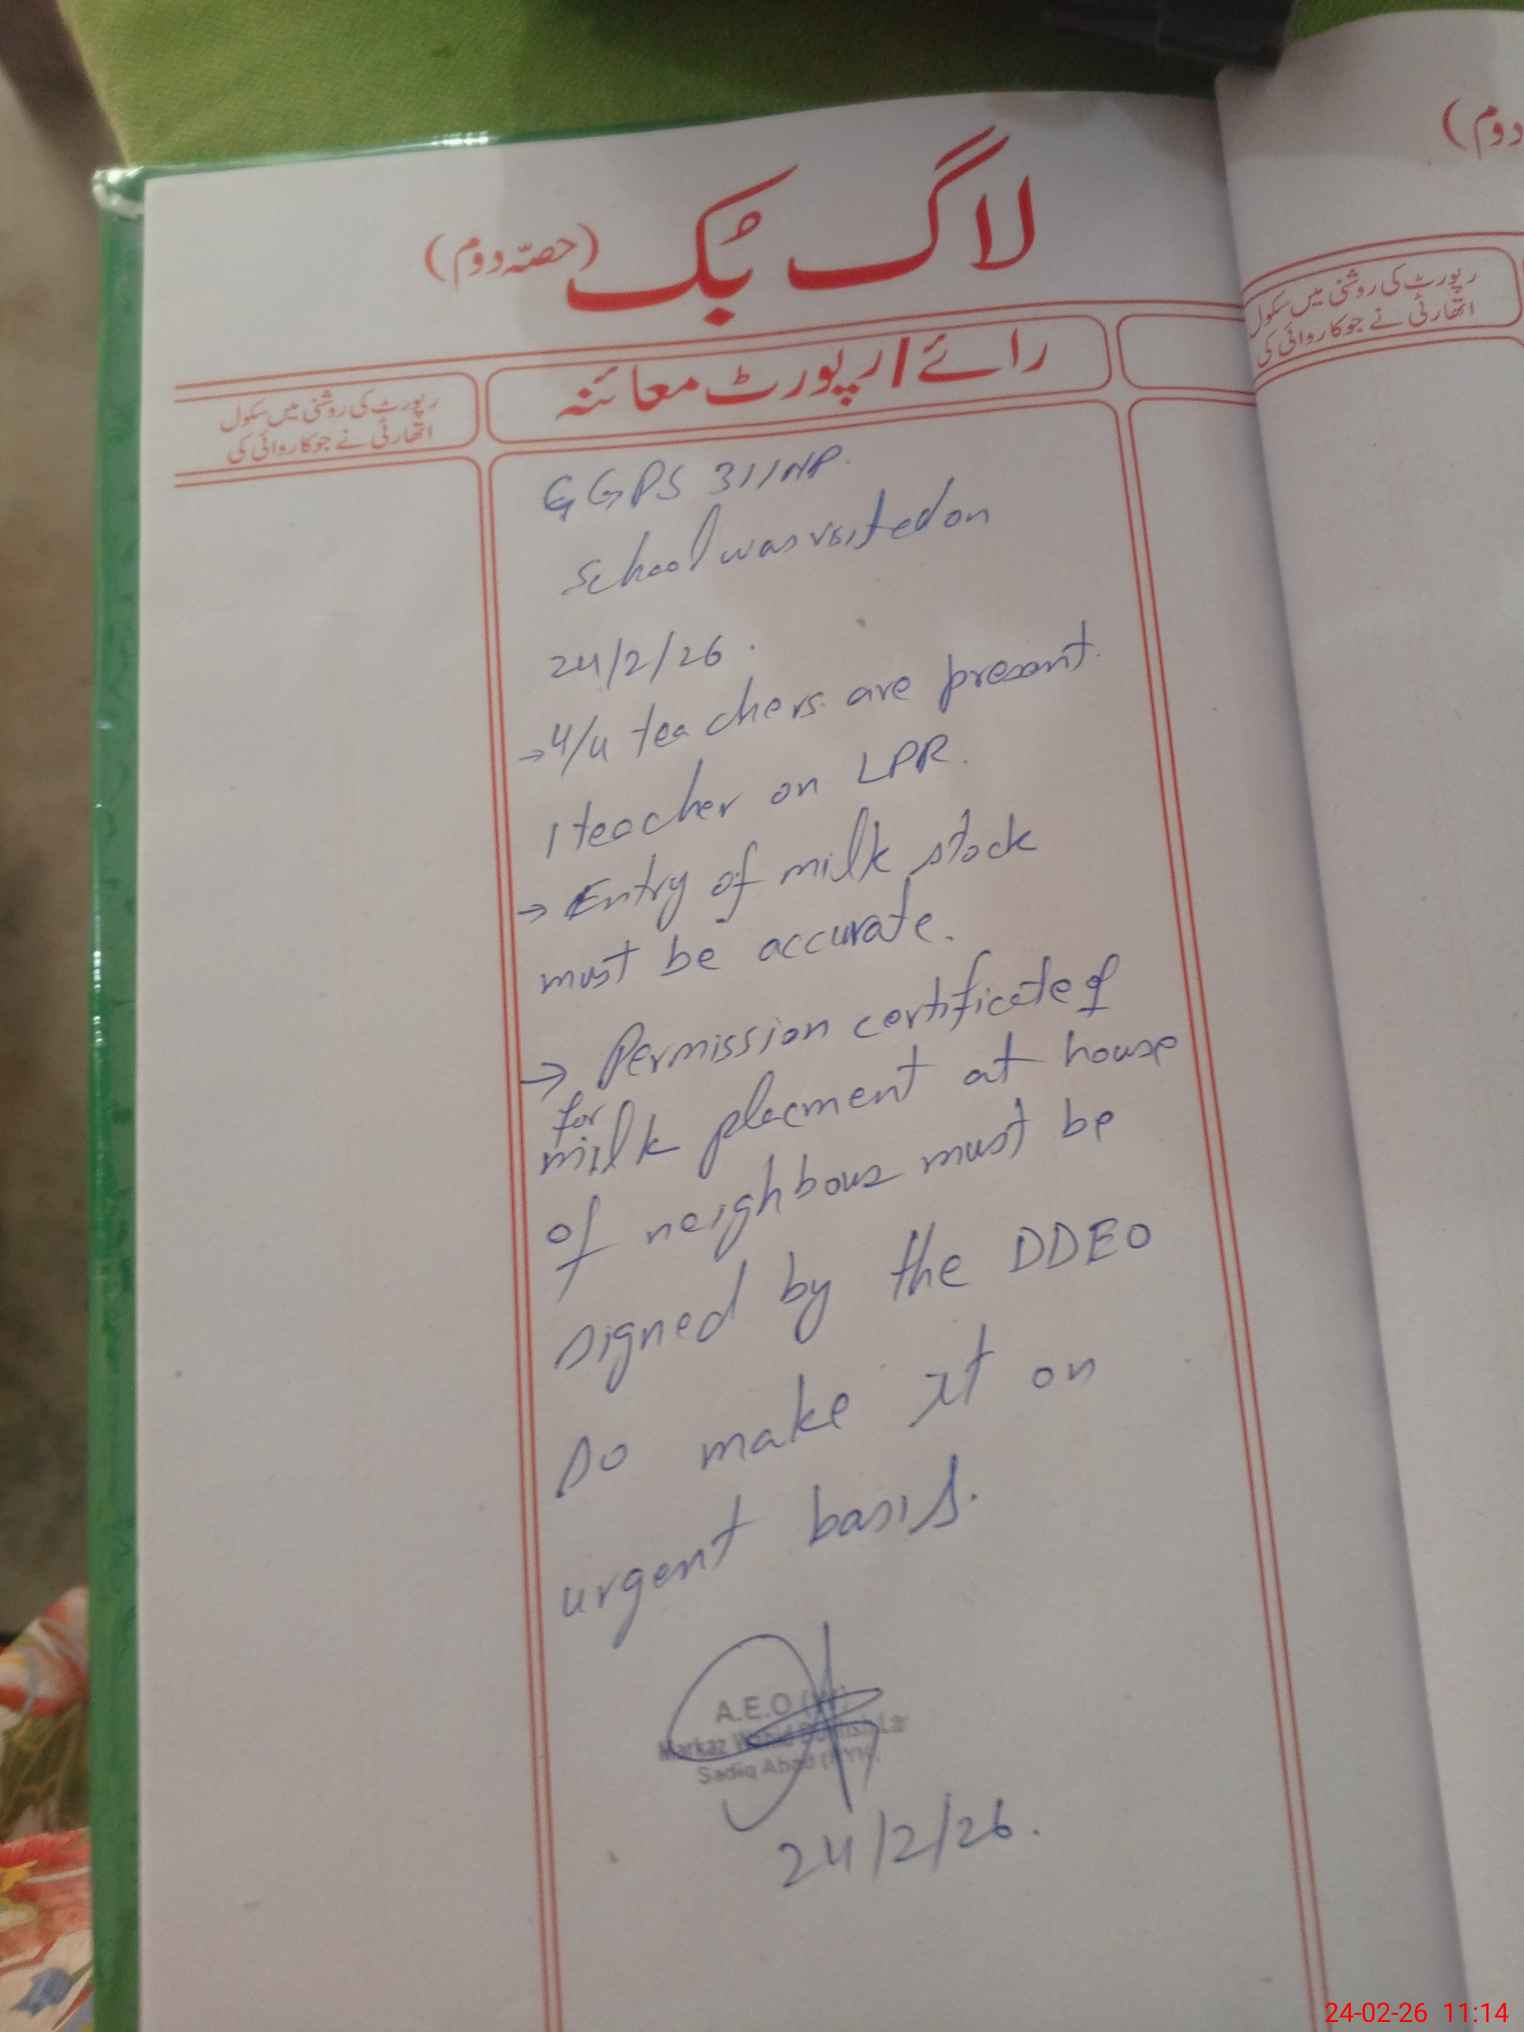 لاگ بُک (حصّہ دوم)
رائے/رپورٹ معائنہ
رپورٹ کی روشنی میں سکول
اتھارٹی نے جو کاروائی کی
GGPS 311NP.
School was visited on
24/2/26.
→ 4/4 teachers are present.
1 teacher on LPR.
→ Entry of milk stock
must be accurate.
→ Permission certificate of
for
milk placment at house
of neighbour must be
signed by the DDEO
So make it on
urgent basis.
A.E.O
Markaz
Sadiq Abad
24/2/26.
دوم)
رپورٹ کی روشنی میں سکول
اتھارٹی نے جو کاروائی کی
24-02-26 11:14